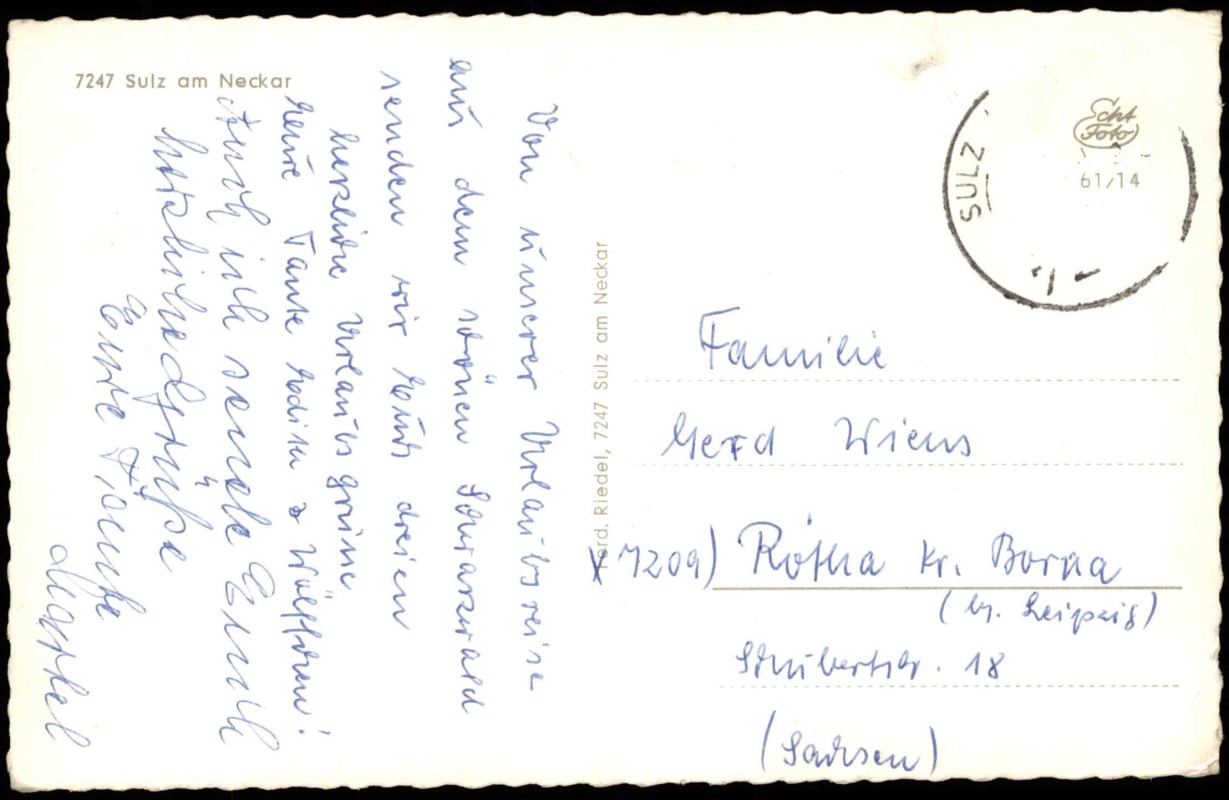 7247 Sulz am Neckar
Von unserer Urlaubsreise
aus dem schönen Schwarzwald
senden wir Euch dreien
herzliche Urlaubsgrüsse
Eure Tante Edith & Wölfchen!
Auch ich sende Euch
herzliche Grüße
Eure Tante
Martel
Ferd. Riedel, 7247 Sulz am Neckar
SULZ
Echt
Foto
61/14
Familie
Gerd Wiens
X 7209) Rötha Kr. Borna
(b. Leipzig)
Schubertstr. 18
(Sachsen)